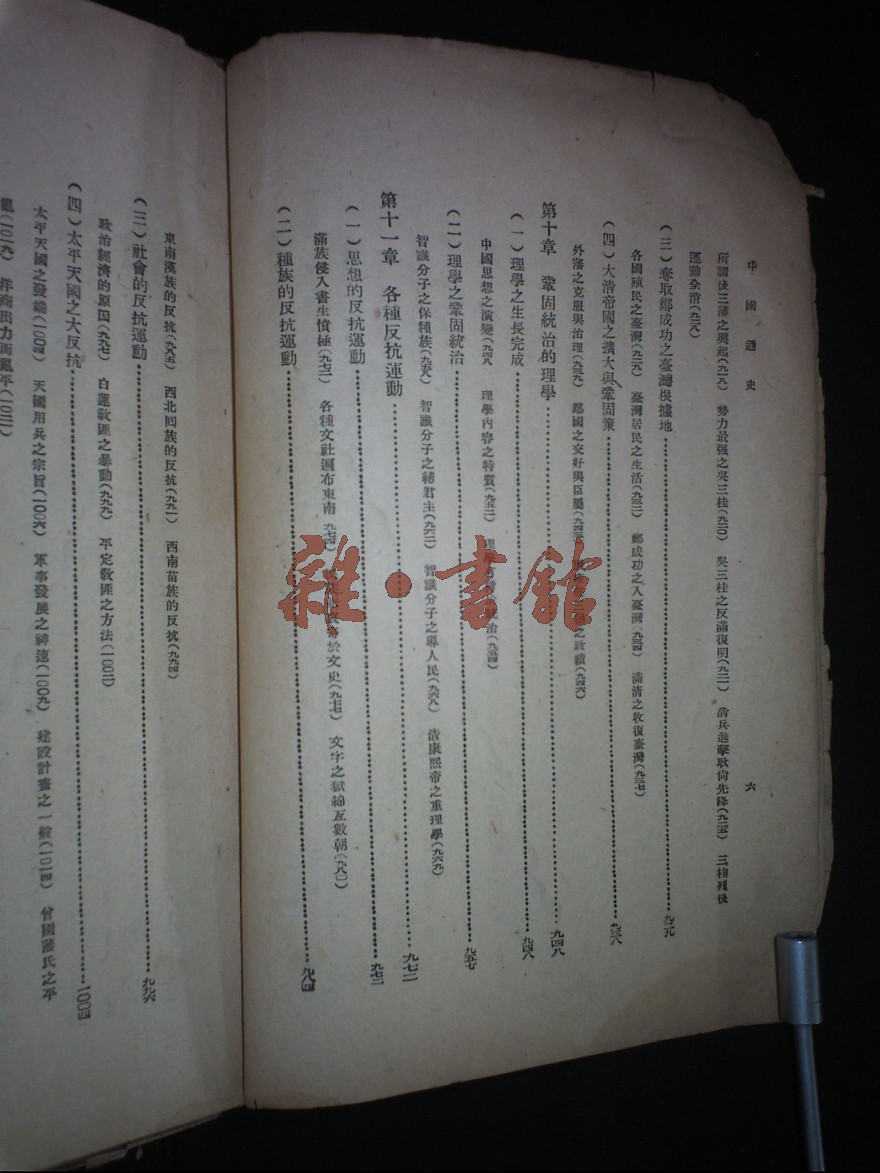 中國通史
六
所謂後三藩之興起(九一八)　勢力最强之吳三桂(九二〇)　吳三桂之反滿復明(九二一)　清兵進擊耿尙先降(九二五)　三桂死後
運動全消(九二八)
(三)奪取鄭成功之臺灣根據地……九二九
各國殖民之臺灣(九二九)　臺灣居民之生活(九三二)　鄭成功之入臺灣(九三四)　滿清之收復臺灣(九三七)
(四)大淸帝國之擴大與鞏固策……九三八
外藩之克服與治理(九三九)　鄰國之交好與臣屬(九四三)　之政績(九四六)
第十章　鞏固統治的理學……九四八
(一)理學之生長完成……九四八
中國思想之演變(九四八)　理學內容之特質(九五二)　理學　治(九五四)
(二)理學之鞏固統治……九五七
智識分子之保種族(九五八)　智識分子之補君主(九六二)　智識分子之導人民(九六八)　清康熙帝之重理學(九六九)
第十一章　各種反抗運動……九七二
(一)思想的反抗運動……九七二
滿族侵入書生憤極(九七二)　各種文社遍布東南(九七四)　於文史(九七七)　文字之獄綿亙數朝(九八〇)
(二)種族的反抗運動……九八四
東南漢族的反抗(九八五)　西北回族的反抗(九九一)　西南苗族的反抗(九九四)
(三)社會的反抗運動……九九六
政治經濟的原因(九九七)　白蓮敎匪之暴動(九九九)　平定敎匪之方法(一〇〇二)
(四)太平天國之大反抗……一〇〇四
太平天國之發端(一〇〇四)　天國用兵之宗旨(一〇〇六)　軍事發展之神速(一〇〇九)　建設計畫之一般(一〇一四)　曾國藩氏之平
亂(一〇一九)　洋商出力而亂平(一〇二二)
雜·書館